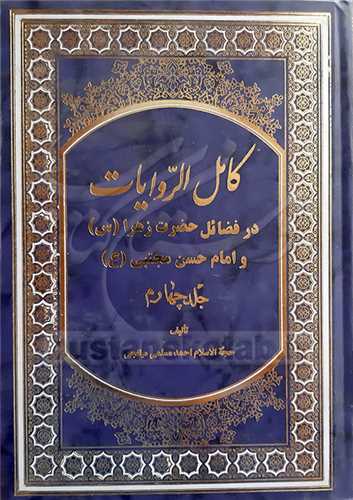 کامل الرّوایات
در فضائل حضرت زهرا (س)
و امام حسن مجتبی (ع)
جلد چهارم
تألیف
حجة الاسلام احمد مسلمی میانجی